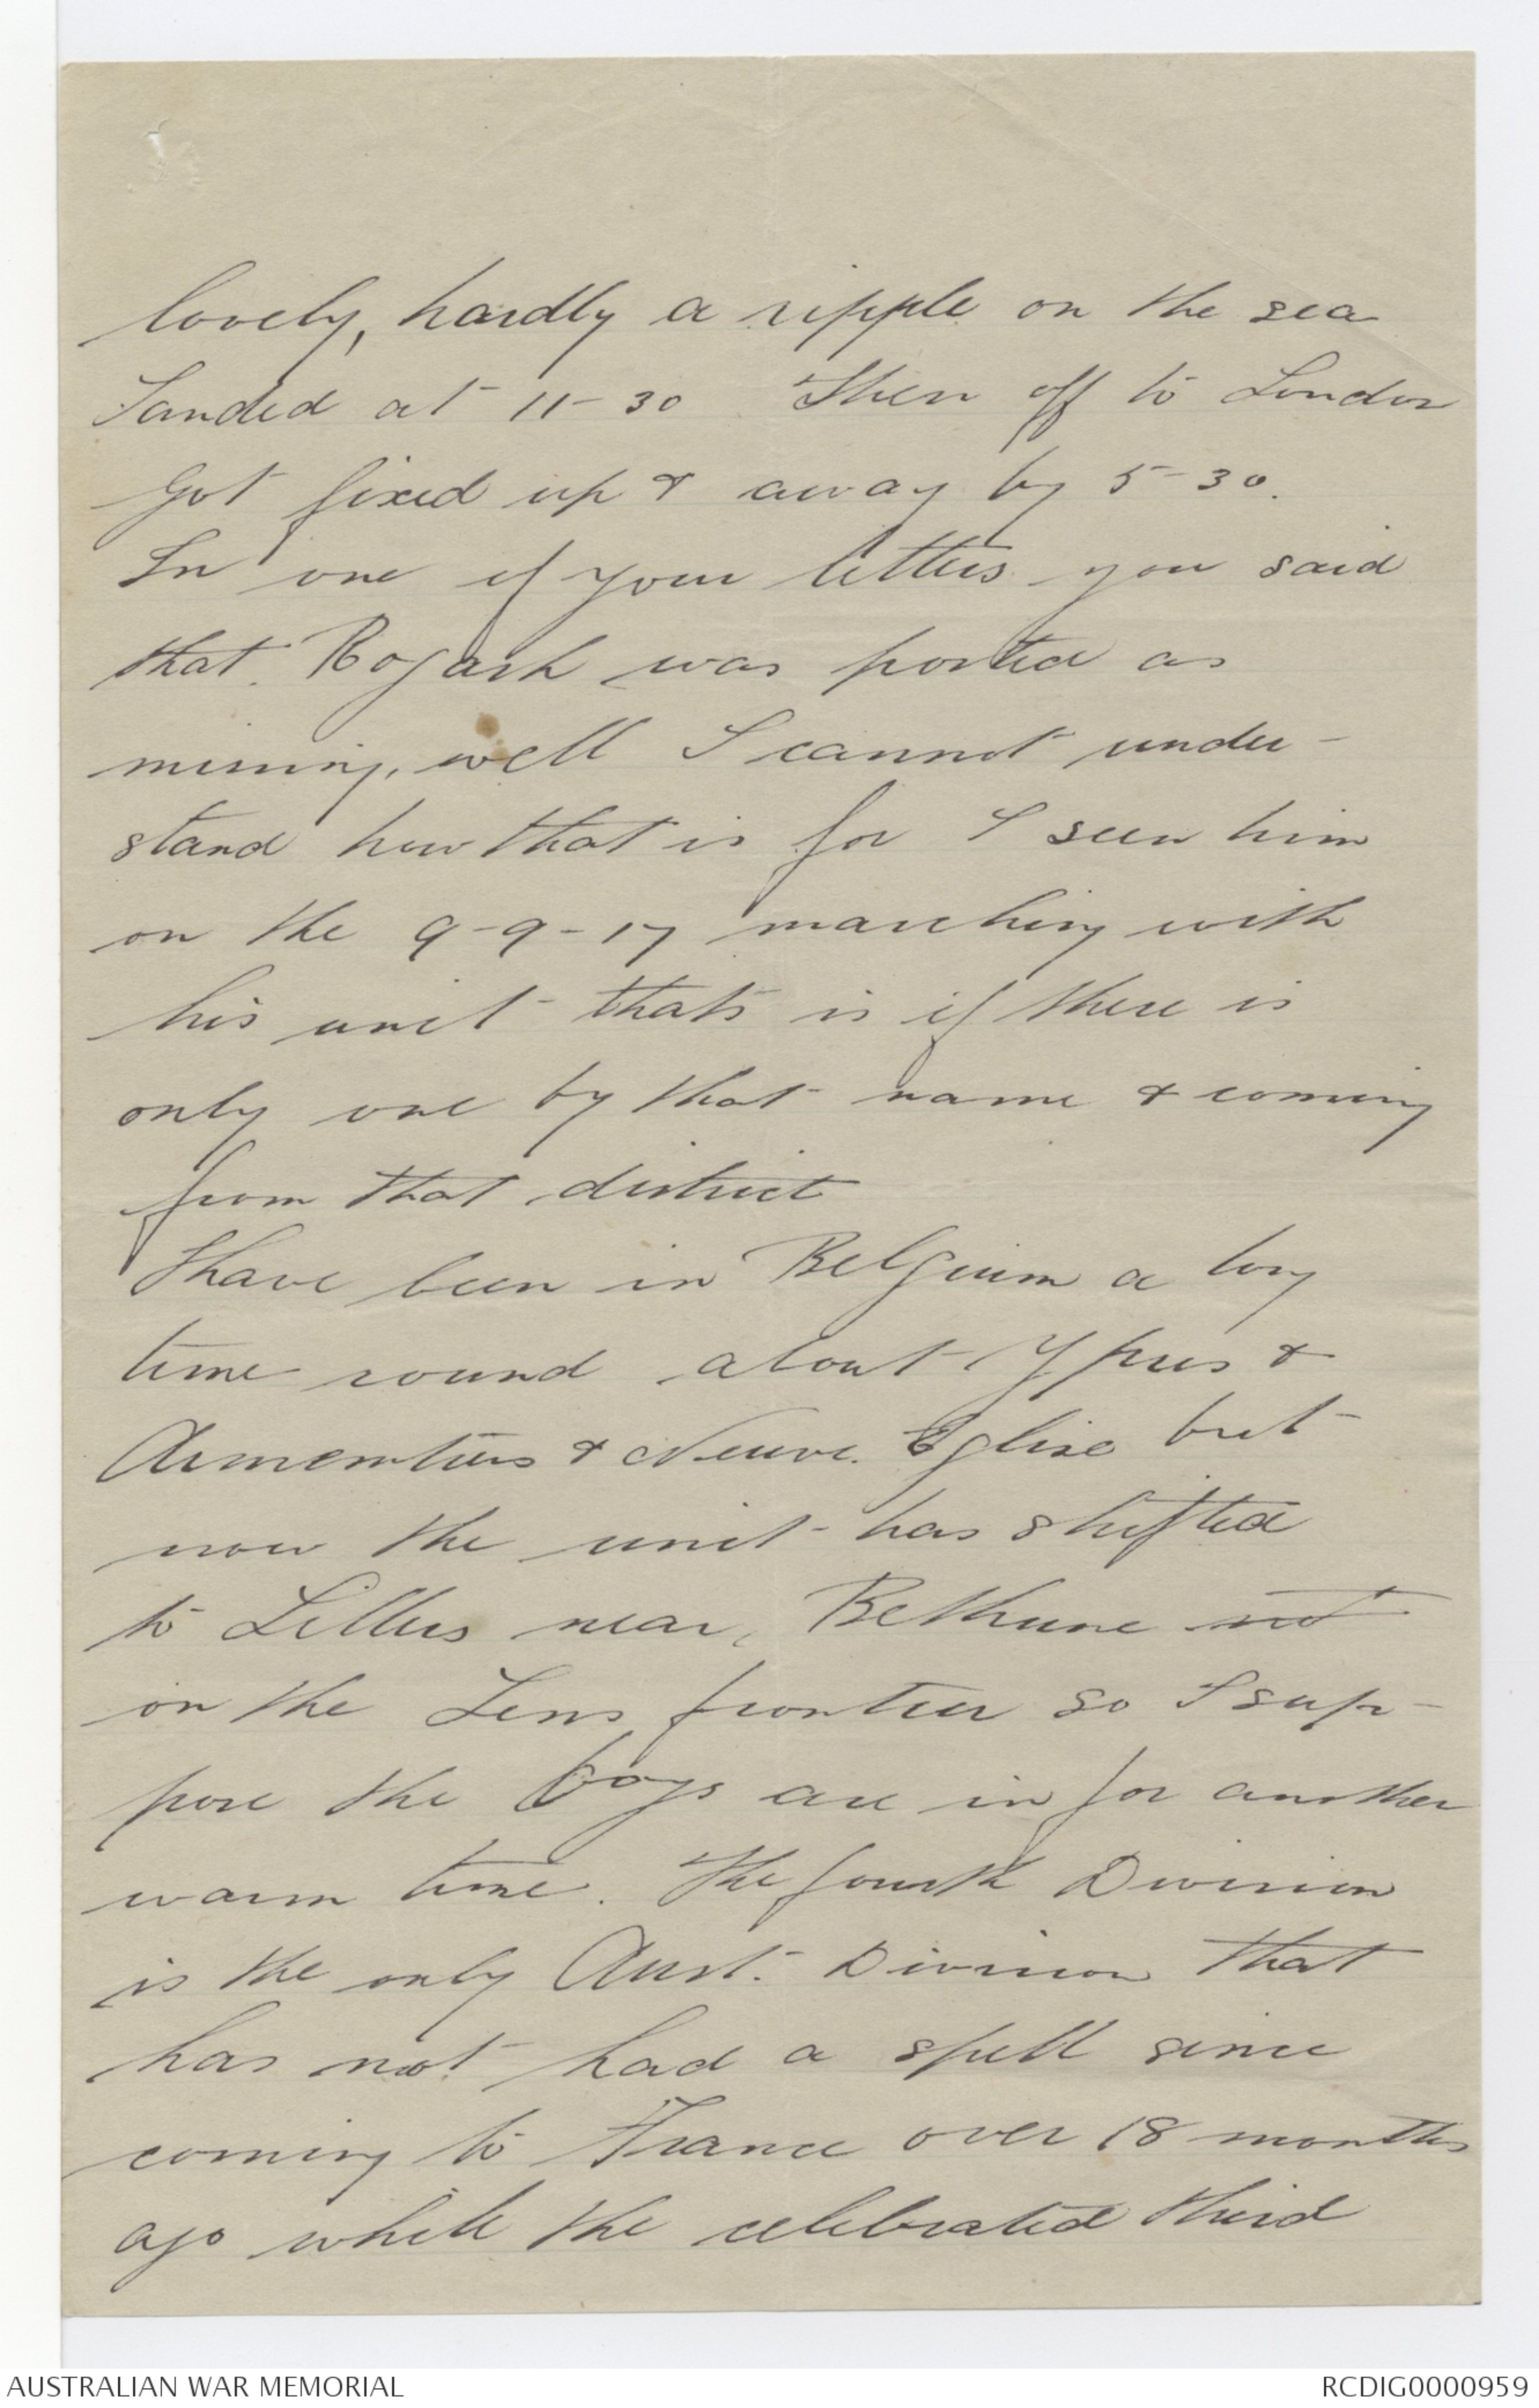 lovely, hardly a ripple on the sea
Landed at 11-30 Then off to London
Got fixed up & away by 5-30.
In one of your letters you said
that was ported as
missing, well I cannot under-
stand how that is for I seen him
on the 9-9-17 marching with
his unit thats is if there is
only one by that name & coming
from that district
I have been in Belgium a long
time round about Ypres &
Armentiers & Neuve. Eglise but
now the unit has shifted
to Lillers near, Bethune not
on the Lens frontier so I sup-
pose the boys are in for another
warm time. The fourth Division
is the only Aust. Division that
has not had a spell since
coming to France over 18 months
ago while the celebrated third
AUSTRALIAN WAR MEMORIAL
RCDIG0000959